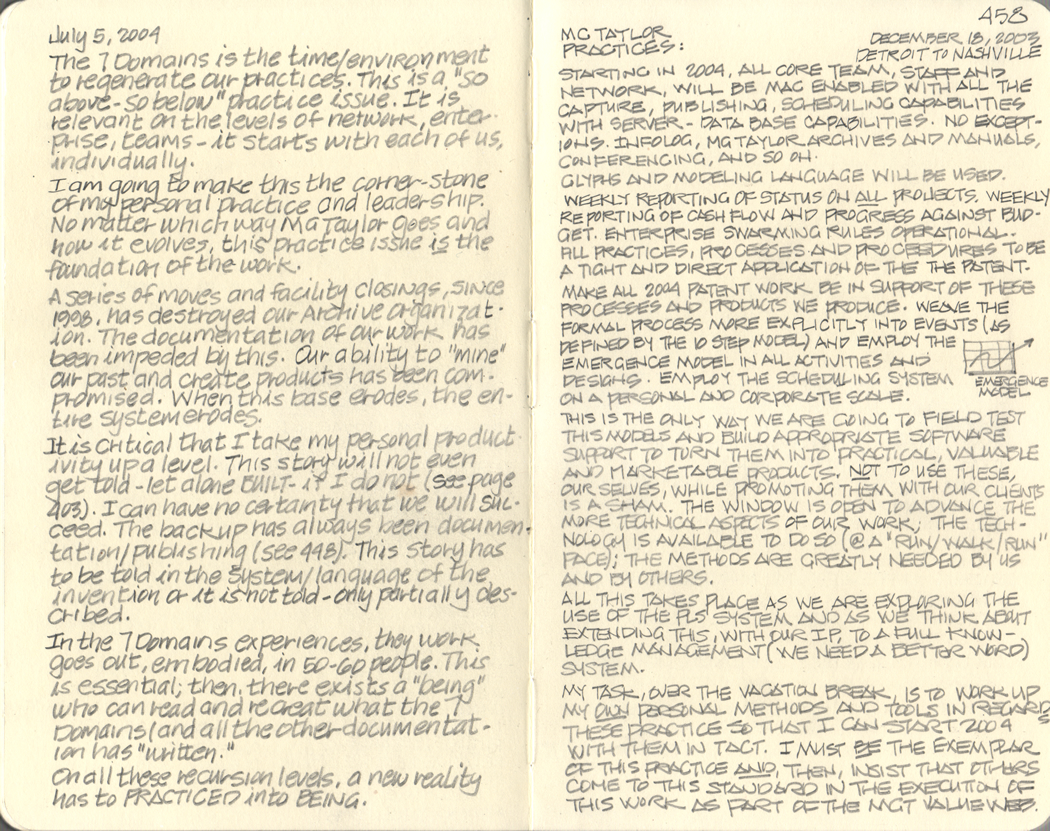 July 5, 2004
The 7 Domains is the time/environment
to regenerate our practices. This is a "so
above - so below" practice issue. It is
relevant on the levels of network, enter-
prise, teams - it starts with each of us,
individually.
I am going to make this the corner-stone
of my personal practice and leadership.
No matter which way MG Taylor goes and
how it evolves, this practice issue is the
foundation of the work.
A series of moves and facility closings, since
1998, has destroyed our Archive organizat-
ion. The documentation of our work has
been impeded by this. Our ability to "mine"
our past and create products has been com-
promised. When this base erodes, the en-
tire system erodes.
It is critical that I take my personal product-
ivity up a level. This story will not even
get told - let alone BUILT - if I do not (see page
403). I can have no certainty that we will suc-
ceed. The backup has always been documen-
tation/publishing (see 448). This story has
to be told in the system/language of the
invention or it is not told - only partially des-
cribed.
In the 7 Domains experiences, they work
goes out, embodied, in 50-60 people. This
is essential; then, there exists a "being"
who can read and recreat what the 7
Domains (and all the other documentat-
ion has "written."
On all these recursion levels, a new reality
has to PRACTICED into BEING.
458
MG TAYLOR
PRACTICES:
DECEMBER 18, 2003
DETROIT TO NASHVILLE
STARTING IN 2004, ALL CORE TEAM, STAFF AND
NETWORK, WILL BE MAC ENABLED WITH ALL THE
CAPTURE, PUBLISHING, SCHEDULING CAPABILITIES
WITH SERVER - DATA BASE CAPABILITIES. NO EXCEPT-
IONS. INFOLOG, MG TAYLOR ARCHIVES AND MANUALS,
CONFERENCING, AND SO ON.
GLYPHS AND MODELING LANGUAGE WILL BE USED.
WEEKLY REPORTING OF STATUS ON ALL PROJECTS. WEEKLY
REPORTING OF CASH FLOW AND PROGRESS AGAINST BUD-
GET. ENTERPRISE SWARMING RULES OPERATIONAL.
ALL PRACTICES, PROCESSES AND PROCEEDURES TO BE
A TIGHT AND DIRECT APPLICATION OF THE THE PATENT.
MAKE ALL 2004 PATENT WORK BE IN SUPPORT OF THESE
PROCESSES AND PRODUCTS WE PRODUCE. WEAVE THE
FORMAL PROCESS MORE EXPLICITLY INTO EVENTS (AS
DEFINED BY THE 10 STEP MODEL) AND EMPLOY THE
EMERGENCE MODEL IN ALL ACTIVITIES AND
DESIGNS. EMPLOY THE SCHEDULING SYSTEM
ON A PERSONAL AND CORPORATE SCALE.
EMERGENCE
MODEL
THIS IS THE ONLY WAY WE ARE GOING TO FIELD TEST
THIS MODELS AND BUILD APPROPRIATE SOFTWARE
SUPPORT TO TURN THEM INTO PRACTICAL, VALUABLE
AND MARKETABLE PRODUCTS. NOT TO USE THESE,
OUR SELVES, WHILE PROMOTING THEM WITH OUR CLIENTS
IS A SHAM. THE WINDOW IS OPEN TO ADVANCE THE
MORE TECHNICAL ASPECTS OF OUR WORK; THE TECH-
NOLOGY IS AVAILABLE TO DO SO (@ A "RUN/WALK/RUN"
PACE); THE METHODS ARE GREATLY NEEDED BY US
AND BY OTHERS.
ALL THIS TAKES PLACE AS WE ARE EXPLORING THE
USE OF THE PLS SYSTEM AND AS WE THINK ABOUT
EXTENDING THIS, WITH OUR IP, TO A FULL KNOW-
LEDGE MANAGEMENT (WE NEED A BETTER WORD)
SYSTEM.
MY TASK, OVER THE VACATION BREAK, IS TO WORK UP
MY OWN PERSONAL METHODS AND TOOLS IN REGARDS
THESE PRACTICE SO THAT I CAN START 2004
WITH THEM IN TACT. I MUST BE THE EXEMPLAR
OF THIS PRACTICE AND, THEN, INSIST THAT OTHERS
COME TO THIS STANDARD IN THE EXECUTION OF
THIS WORK AS PART OF THE MGT VALUE WEB.